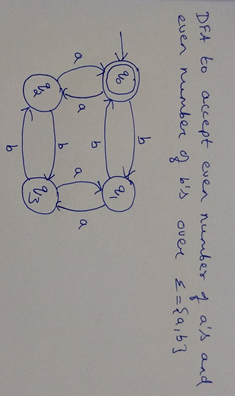 DFA to accept even number of a's and
even number of b's over Σ={a,b}
q0
b
b
q1
a
a
a
a
q2
b
b
q3